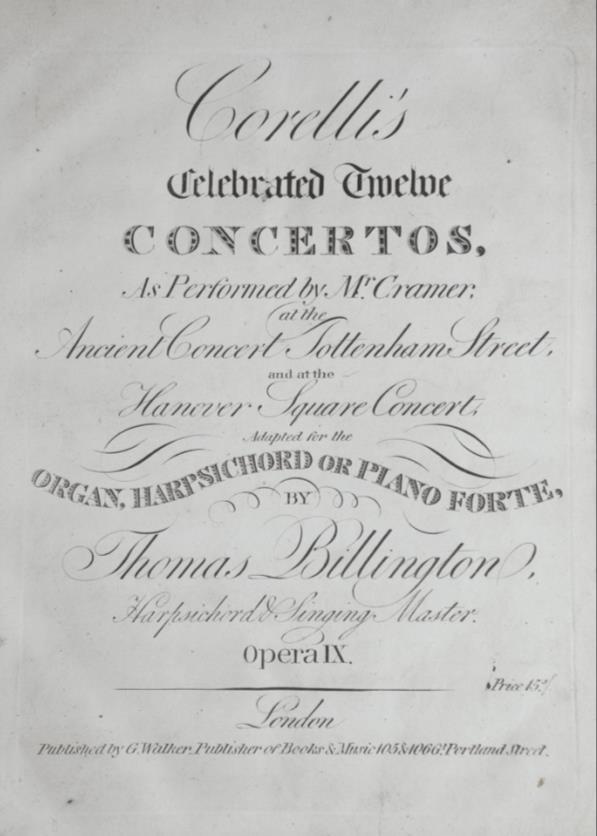 Corelli's
Celebrated Twelve
CONCERTOS,
As Performed by Mr. Cramer,
at the
Ancient Concert Tottenham Street,
and at the
Hanover Square Concert,
Adapted for the
ORGAN, HARPSICHORD OR PIANO FORTE,
BY
Thomas Billington,
Harpsichord & Singing Master.
Opera IX.
Price 15s/
London
Published by G. Walker, Publisher of Books & Music 105 & 106 Gt. Portland Street.